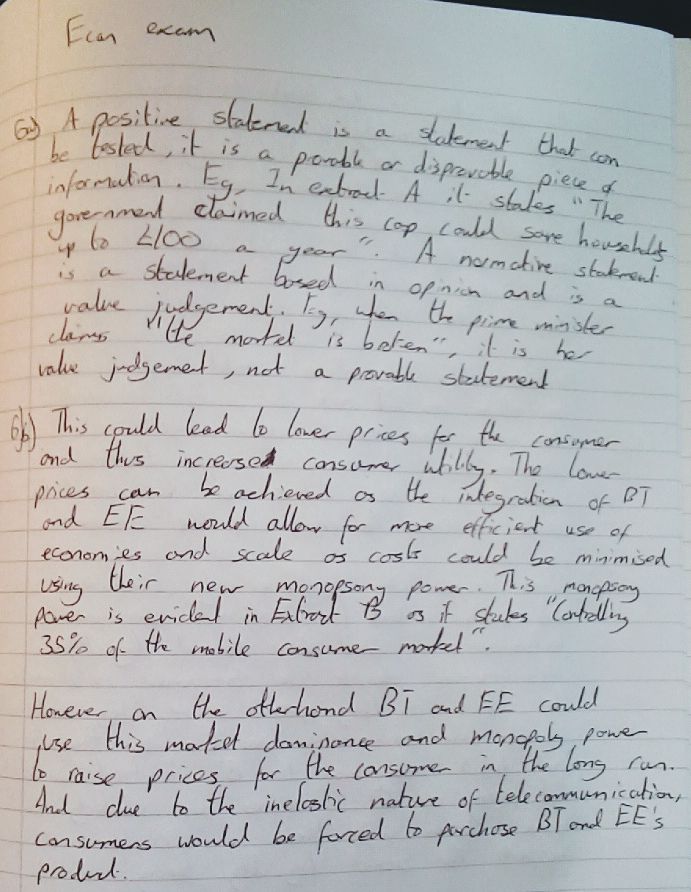 Econ exam
6a) A positive statement is a statement that can
be tested, it is a provable or disprovable piece of
information. Eg, In extract A it states "The
government claimed this cap could save households
up to £100 a year". A normative statement
is a statement based in opinion and is a
value judgement. Eg, when the prime minister
claims "the market is broken", it is her
value judgement, not a provable statement
6b) This could lead to lower prices for the consumer
and thus increased consumer utility. The lower
prices can be achieved as the integration of BT
and EE would allow for more efficient use of
economies and scale as costs could be minimised
using their new monopsony power. This monopsony
power is evident in Extract B as it states "Controlling
35% of the mobile consumer market".
However on the otherhand BT and EE could
use this market dominance and monopoly power
to raise prices for the consumer in the long run.
And due to the inelastic nature of telecommunication,
consumers would be forced to purchase BT and EE's
product.